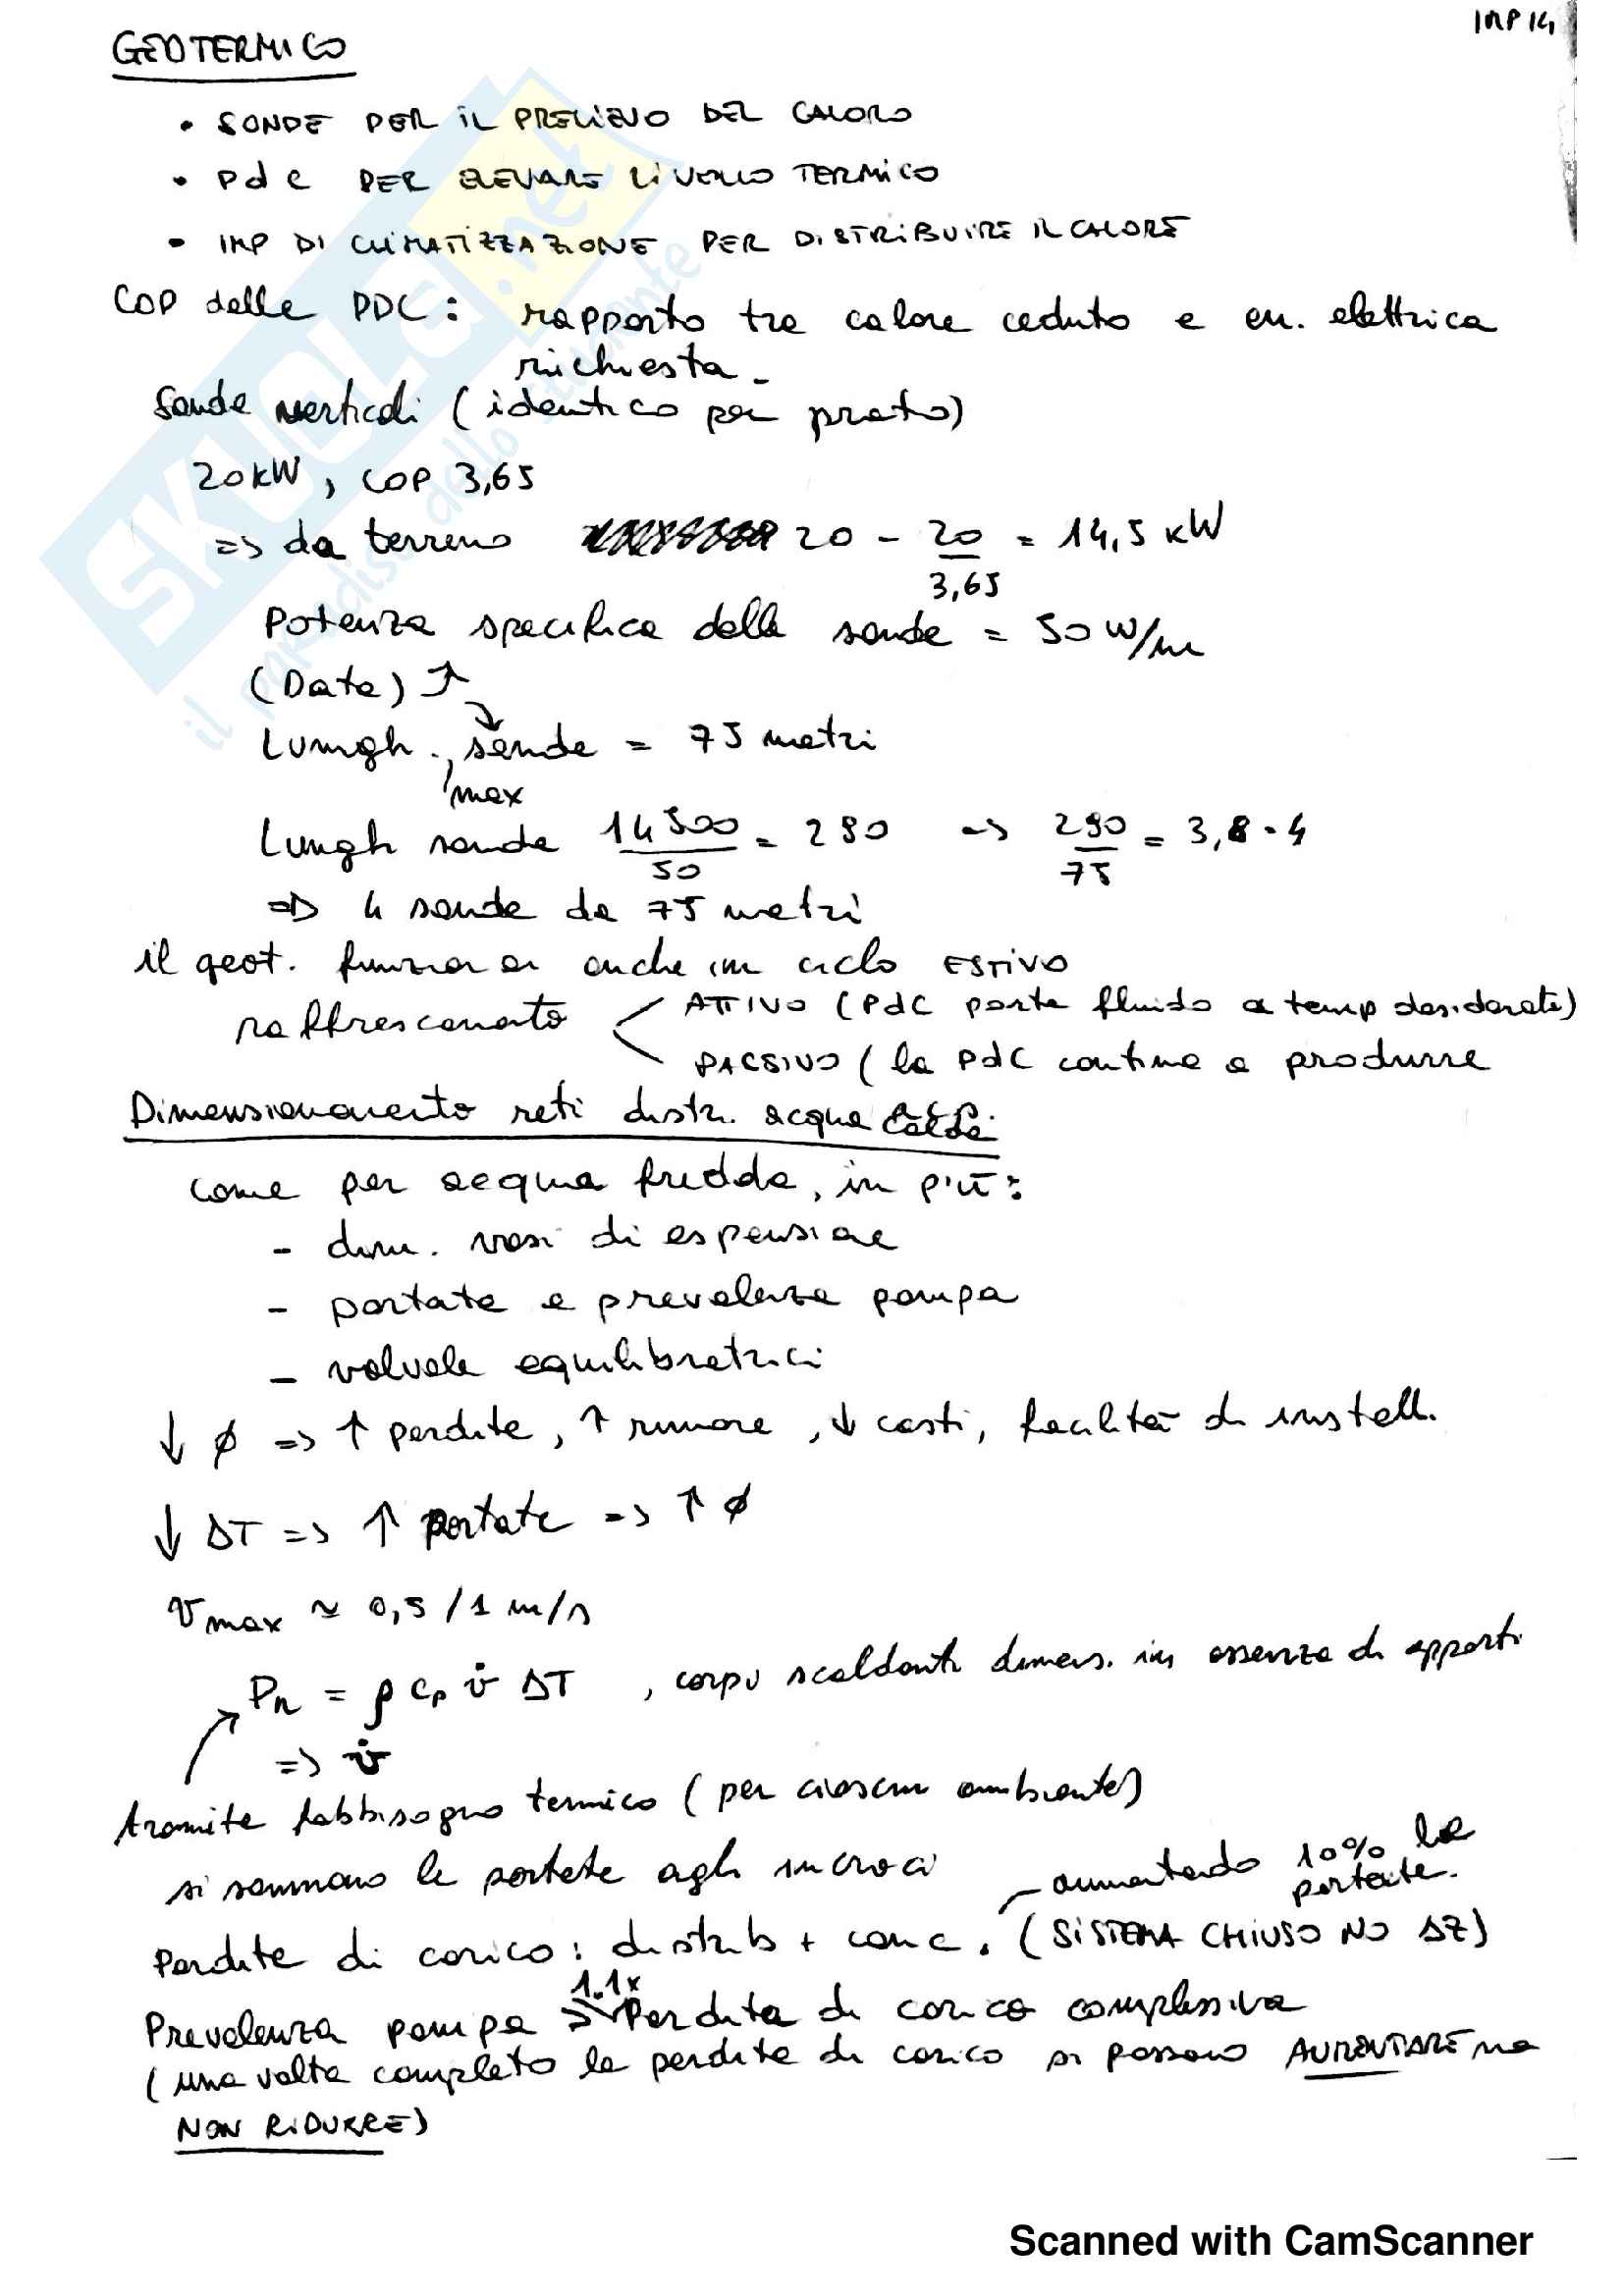 IMP 14
GEOTERMICO
• SONDE PER IL PRELIEVO DEL CALORE
• PdC PER ELEVARE LIVELLO TERMICO
• IMP DI CLIMATIZZAZIONE PER DISTRIBUIRE IL CALORE
COP delle PDC: rapporto tra calore ceduto e en. elettrica
richiesta.
Sonde verticali (identico per prato)
20kW, COP 3,65
=> da terreno 20 - 20/3,65 = 14,5 kW
Potenza specifica delle sonde = 50 W/m
(Data) ↑
Lungh. sonde = 75 metri
max
Lungh sonda 14500/50 = 290 => 290/75 = 3,8 = 4
=> 4 sonde da 75 metri
il geot. funziona anche in ciclo ESTIVO
raffrescamento ATTIVO (PdC porta fluido a temp desiderata)
PASSIVO (la PdC continua a produrre
A.C.S.
Dimensionamento reti distr. acqua calda
come per acqua fredda, in più:
- dim. vasi di espansione
- portate e prevalenza pompa
- valvole equilibratrici
↓ ø => ↑ perdite, ↑ rumore, ↓ costi, facilità di install.
↓ ΔT => ↑ portate => ↑ ø
vmax ≃ 0,5/1 m/s
Pn = ρ cp v̇ ΔT , corpi scaldanti dimens. in assenza di apporti
=> v̇
tramite fabbisogno termico (per ciascun ambiente)
si sommano le portate agli incroci
aumentando 10% le
portate.
Perdite di carico: distrib + conc. (SISTEMA CHIUSO NO ΔZ)
1.1x
Prevalenza pompa ≥ Perdita di carico complessiva
(una volta completo le perdite di carico si possono AUMENTARE ma
NON RIDURRE)
SKUOLA.net
il paradiso dello studente
Scanned with CamScanner